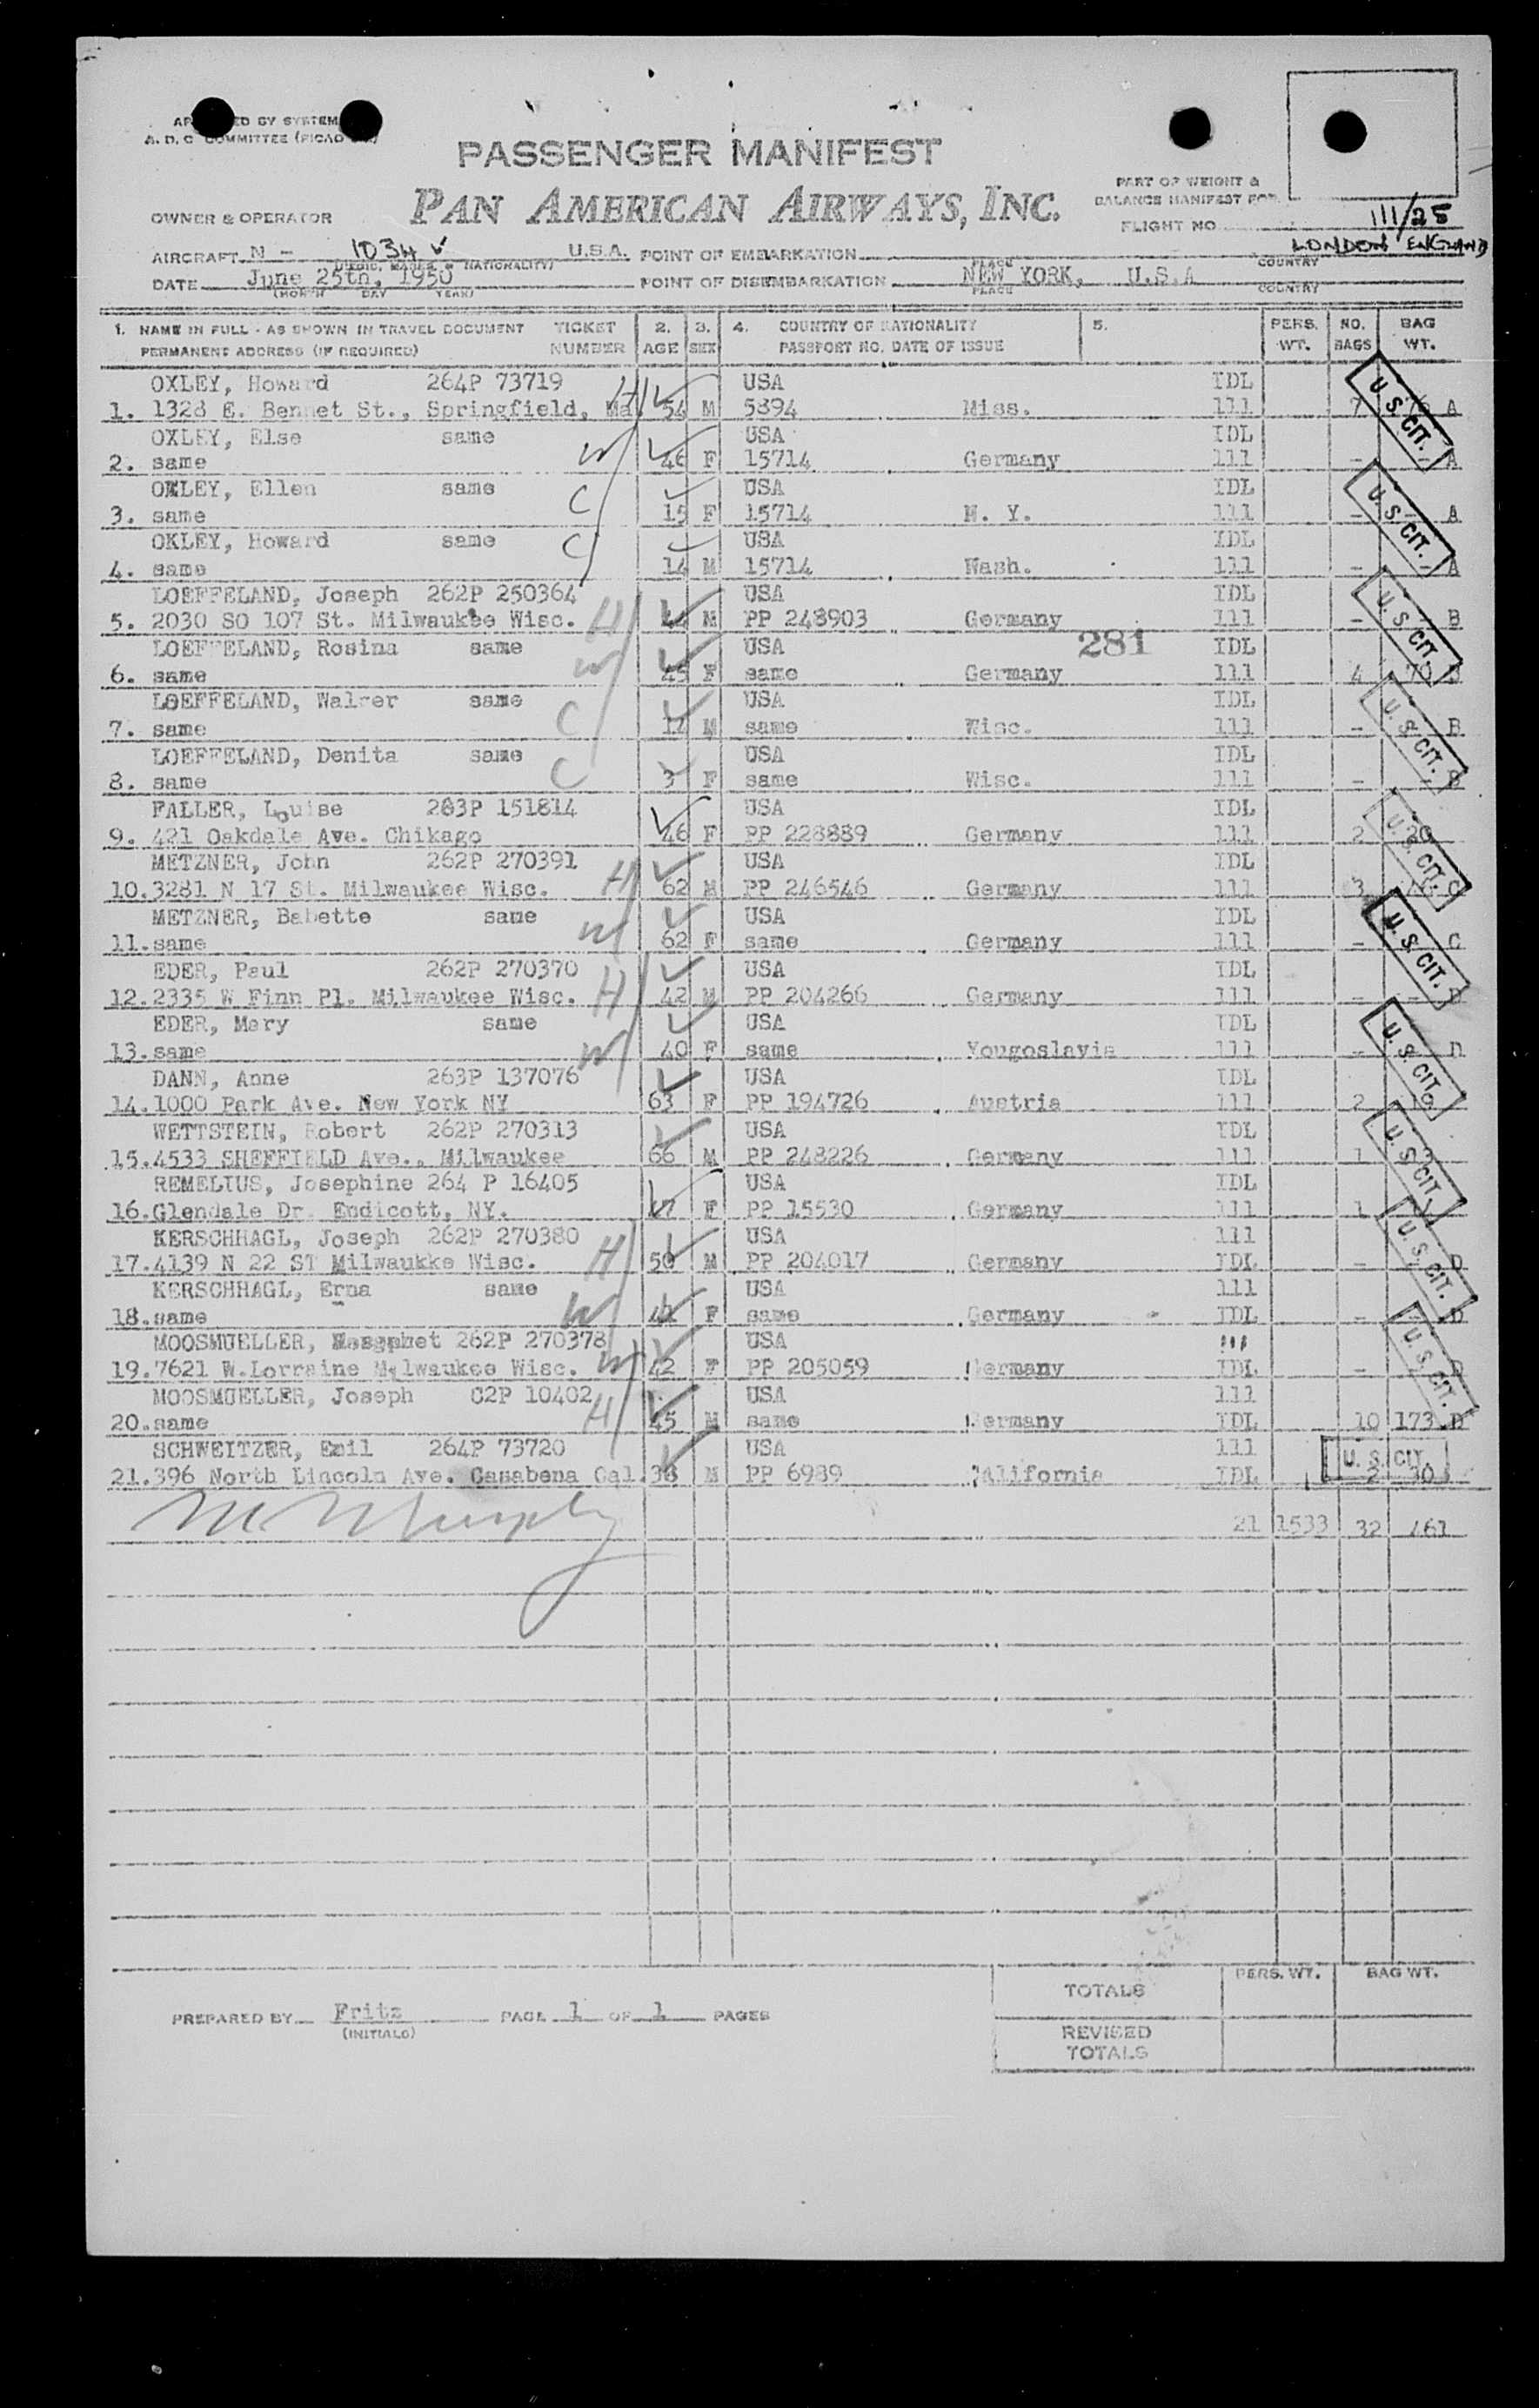 A. D. C. COMMITTEE
PASSENGER MANIFEST
PAN AMERICAN AIRWAYS, INC.
PART OF WEIGHT &
BALANCE MANIFEST FOR
OWNER & OPERATOR
FLIGHT NO. 111/25
AIRCRAFT N - 1034 U.S.A. POINT OF EMBARKATION LONDON ENGLAND
NATIONALITY) PLACE COUNTRY
DATE June 25th, 1950 POINT OF DISEMBARKATION NEW YORK, U.S.A
(MONTH DAY YEAR) PLACE COUNTRY
1. NAME IN FULL - AS SHOWN IN TRAVEL DOCUMENT TICKET 2. 3. 4. COUNTRY OF NATIONALITY 5. PERS. NO. BAG
PERMANENT ADDRESS (IF REQUIRED) NUMBER AGE SEX PASSPORT NO. DATE OF ISSUE WT. BAGS WT.
OXLEY, Howard 264P 73719 H USA IDL
1. 1328 E. Bennet St., Springfield, 54 M 5894 Miss. 111 7 A
OXLEY, Else same USA IDL
2. same W 46 F 15714 Germany 111 - A
OXLEY, Ellen same C USA IDL
3. same 15 F 15714 N. Y. 111 - A
OXLEY, Howard same C USA IDL
4. same 14 M 15714 Wash. 111 - A
LOEFFELAND, Joseph 262P 250364 USA IDL
5. 2030 SO 107 St. Milwaukee Wisc. H M PP 248903 Germany 111 - B
LOEFFELAND, Rosina same USA 281 IDL
6. same W 45 F same Germany 111 4 70 B
LOEFFELAND, Walrer same USA IDL
7. same C M same Wisc. 111 - B
LOEFFELAND, Denita same USA IDL
8. same C 3 F same Wisc. 111 - B
FALLER, Louise 263P 151814 USA IDL
9. 421 Oakdale Ave. Chikago 46 F PP 228889 Germany 111 2 20
METZNER, John 262P 270391 USA IDL
10. 3281 N 17 St. Milwaukee Wisc. H 62 M PP 246546 Germany 111 3 C
METZNER, Babette same USA IDL
11. same W 62 F same Germany 111 - C
EDER, Paul 262P 270370 USA IDL
12. 2335 W Finn Pl. Milwaukee Wisc. H 42 M PP 204266 Germany 111 - - D
EDER, Mary same USA IDL
13. same W 40 F same Yougoslavia 111 - D
DANN, Anne 263P 137076 USA IDL
14. 1000 Park Ave. New York NY 63 F PP 194726 Austria 111 2 19
WETTSTEIN, Robert 262P 270313 USA IDL
15. 4533 SHEFFIELD Ave., Milwaukee 66 M PP 248226 Germany 111 1
REMELIUS, Josephine 264 P 16405 USA IDL
16. Glendale Dr. Endicott, NY. 47 F PP 15530 Germany 111 1
KERSCHHAGL, Joseph 262P 270380 USA 111
17. 4139 N 22 ST Milwaukke Wisc. H 50 M PP 204017 Germany IDL - D
KERSCHHAGL, Erna same USA 111
18. same W F same Germany IDL - D
MOOSMUELLER, 262P 270378 USA 111
19. 7621 W.Lorraine Milwaukee Wisc. W 42 F PP 205059 Germany IDL - D
MOOSMUELLER, Joseph 02P 10402 USA 111
20. same H 45 M same Germany IDL 10 173 D
SCHWEITZER, Emil 264P 73720 USA 111
21. 396 North Lincoln Ave. Casabena Cal. 38 M PP 6989 California IDL 2 30
U. S. CIT.
U. S. CIT.
U. S. CIT.
U. S. CIT.
U. S. CIT.
U. S. CIT.
U. S. CIT.
U. S. CIT.
U. S. CIT.
U. S. CIT.
U. S. CIT.
M Murphy 21 1533 32 461
PERS. WT. BAG WT.
TOTALS
PREPARED BY Fritz PAGE 1 OF 1 PAGES
(INITIALS)
REVISED
TOTALS